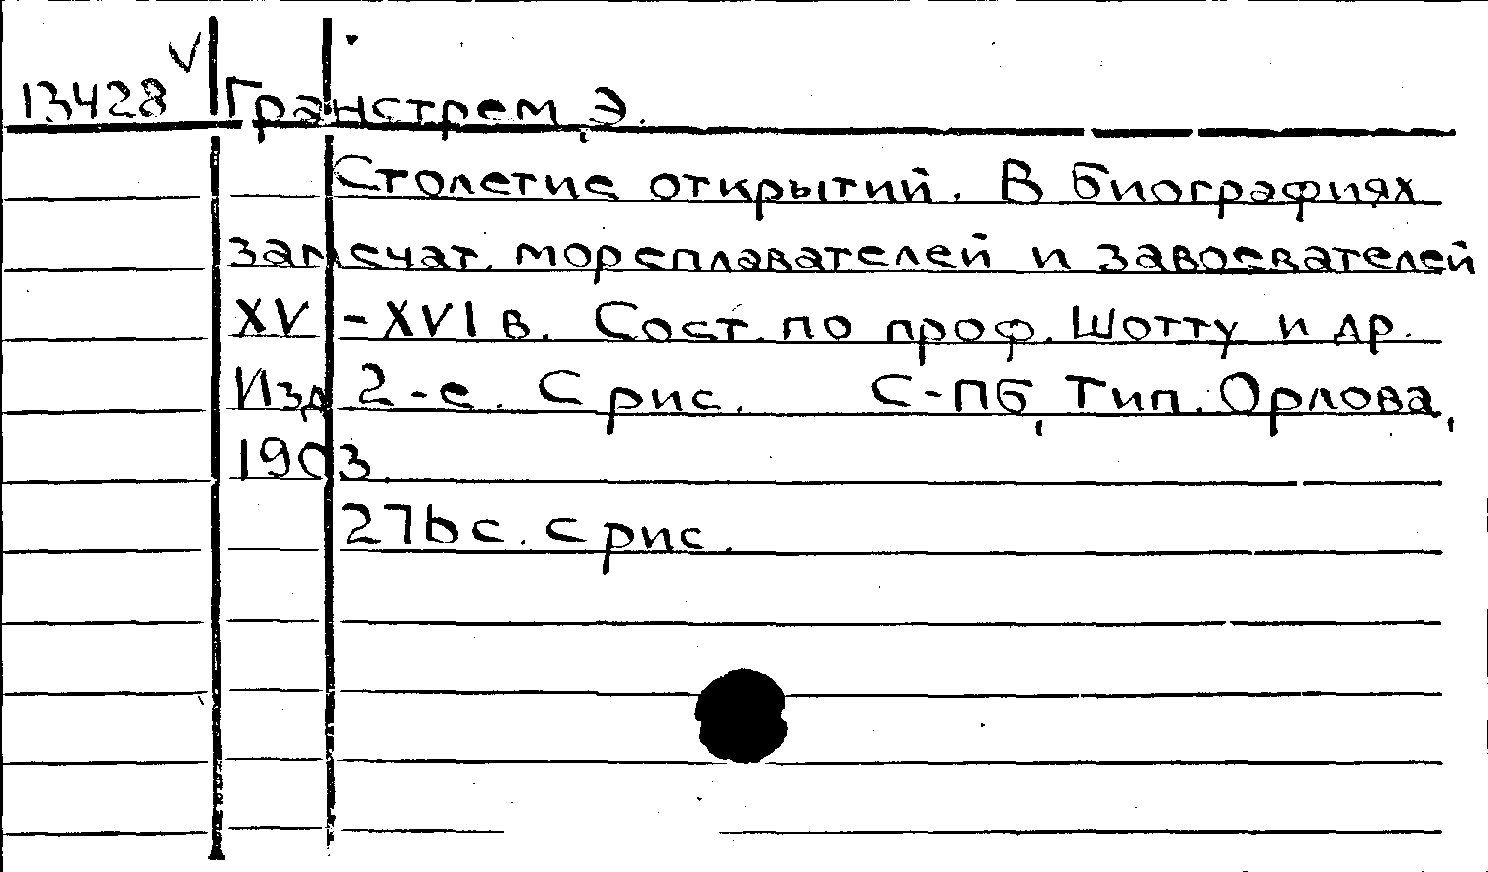 13428 Гранстрем, Э.
Столетие открытий. В биографиях
замечат. мореплавателей и завоевателей
XV - XVI в. Сост. по проф. Шотту и др.
Изд 2-е. С рис. С-ПБ, Тип. Орлова,
1903.
276 с. с рис.